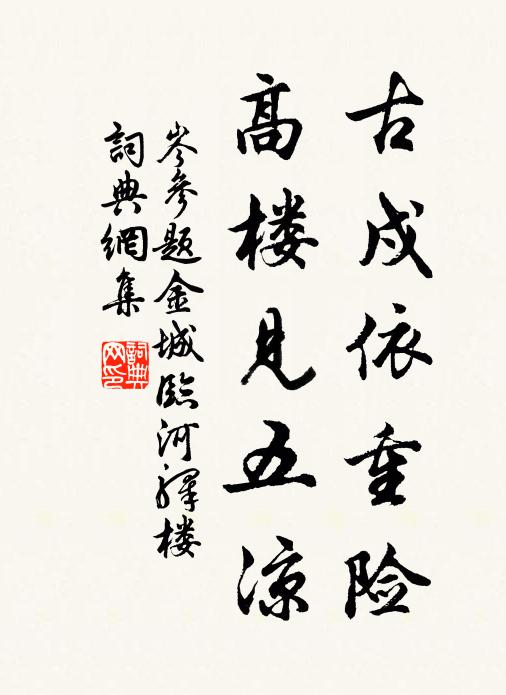 古戍依重险
高楼见五凉
岑参题金城臨河驛楼
詞典網集
詞典網印